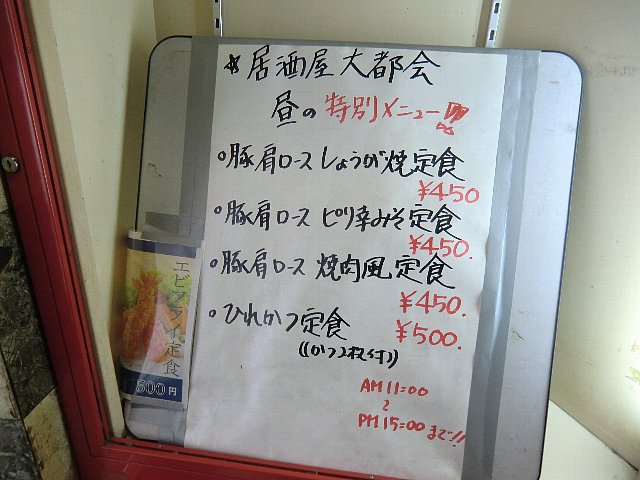 ☆居酒屋大都会
昼の特別メニュー!!
○豚肩ロースしょうが焼定食
¥450
○豚肩ロース ピリ辛みそ定食
¥450.
○豚肩ロース 焼肉風定食
¥450.
○ひれかつ定食
¥500.
((かつ2枚付))
AM11:00
~
PM15:00まで!!
エビフライ定食
600円